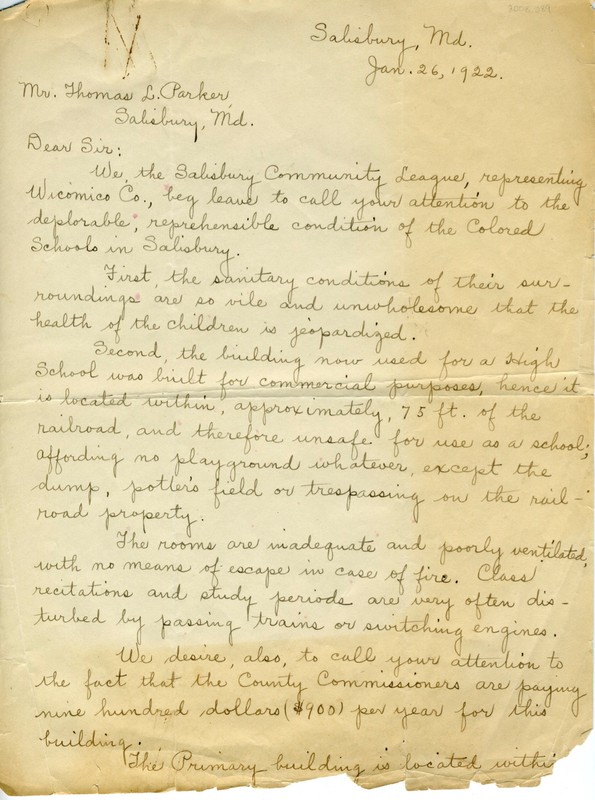 2008.089
Salisbury, Md.
Jan. 26, 1922.
Mr. Thomas L. Parker
Salisbury, Md.
Dear Sir:
We, the Salisbury Community League, representing
Wicomico Co., beg leave to call your attention to the
deplorable, reprehensible condition of the Colored
Schools in Salisbury.
First, the sanitary conditions of their sur-
roundings are so vile and unwholesome that the
health of the children is jeopardized.
Second, the building now used for a High
School was built for commercial purposes, hence it
is located within, approximately, 75 ft. of the
railroad, and therefore unsafe for use as a school;
affording no playground whatever, except the
dump, potter's field or trespassing on the rail-
road property.
The rooms are inadequate and poorly ventilated,
with no means of escape in case of fire. Class
recitations and study periods are very often dis-
turbed by passing trains or switching engines.
We desire, also, to call your attention to
the fact that the County Commissioners are paying
nine hundred dollars ($900) per year for this
building.
The Primary building is located withi